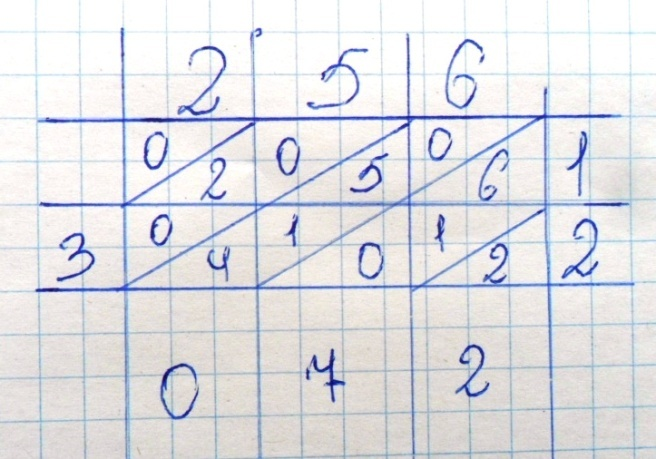 2 5 6
0 2 0 5 0 6 1
3 0 4 1 0 1 2 2
0 7 2